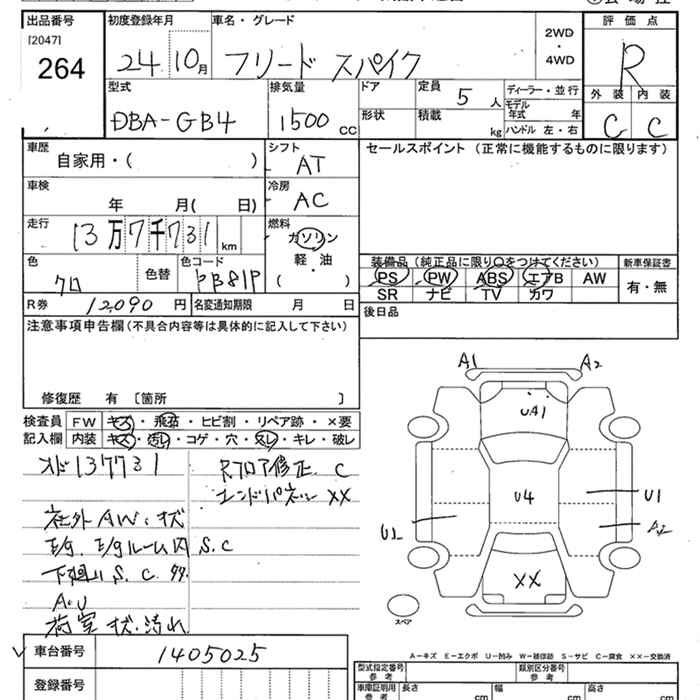 出品番号
[2047]
264
初度登録年月
24 10月
車名・グレード
フリード スパイク
2WD
・
4WD
評価点
R
外装 内装
C C
型式
DBA-GB4
排気量
1500 CC
ドア
形状
定員
5人
積載
kg
ディーラー・並行
モデル
年式 年
ハンドル 左・右
車歴
自家用・( )
シフト
AT
セールスポイント (正常に機能するものに限ります)
車検
年 月( 日)
冷房
AC
走行
13万7千731km
燃料
ガソリン
軽・油
( )
色
クロ
色替
色コード
PB81P
装備品 (純正品に限り○をつけてください)
PS PW ABS エアB AW
SR ナビ TV カワ
新車保証書
有・無
R券 12,090円
名変通知期限 月 日
後日品
注意事項申告欄(不具合内容等は具体的に記入して下さい)
修復歴 有 〔箇所 〕
検査員 FW キズ・飛石・ヒビ割・リペア跡・×要
記入欄 内装 キズ・汚レ・コゲ・穴・スレ・キレ・破レ
メド137731
社外AW、キズ
E/g、E/gルーム内 S.C
下廻りS.C
A.U
荷室 キズ・汚れ
Rフロア修正 C
エンドパネル XX
A1
A2
UA1
U4
U1
U2
A2
XX
スペア
車台番号 1405025
登録番号
A-キズ E-エクボ U-凹み W-補修跡 S-サビ C-腐食 XX-交換済
型式指定番号
参考
類別区分番号
参考
車庫証明用
参考
長さ cm
幅 cm
高さ cm